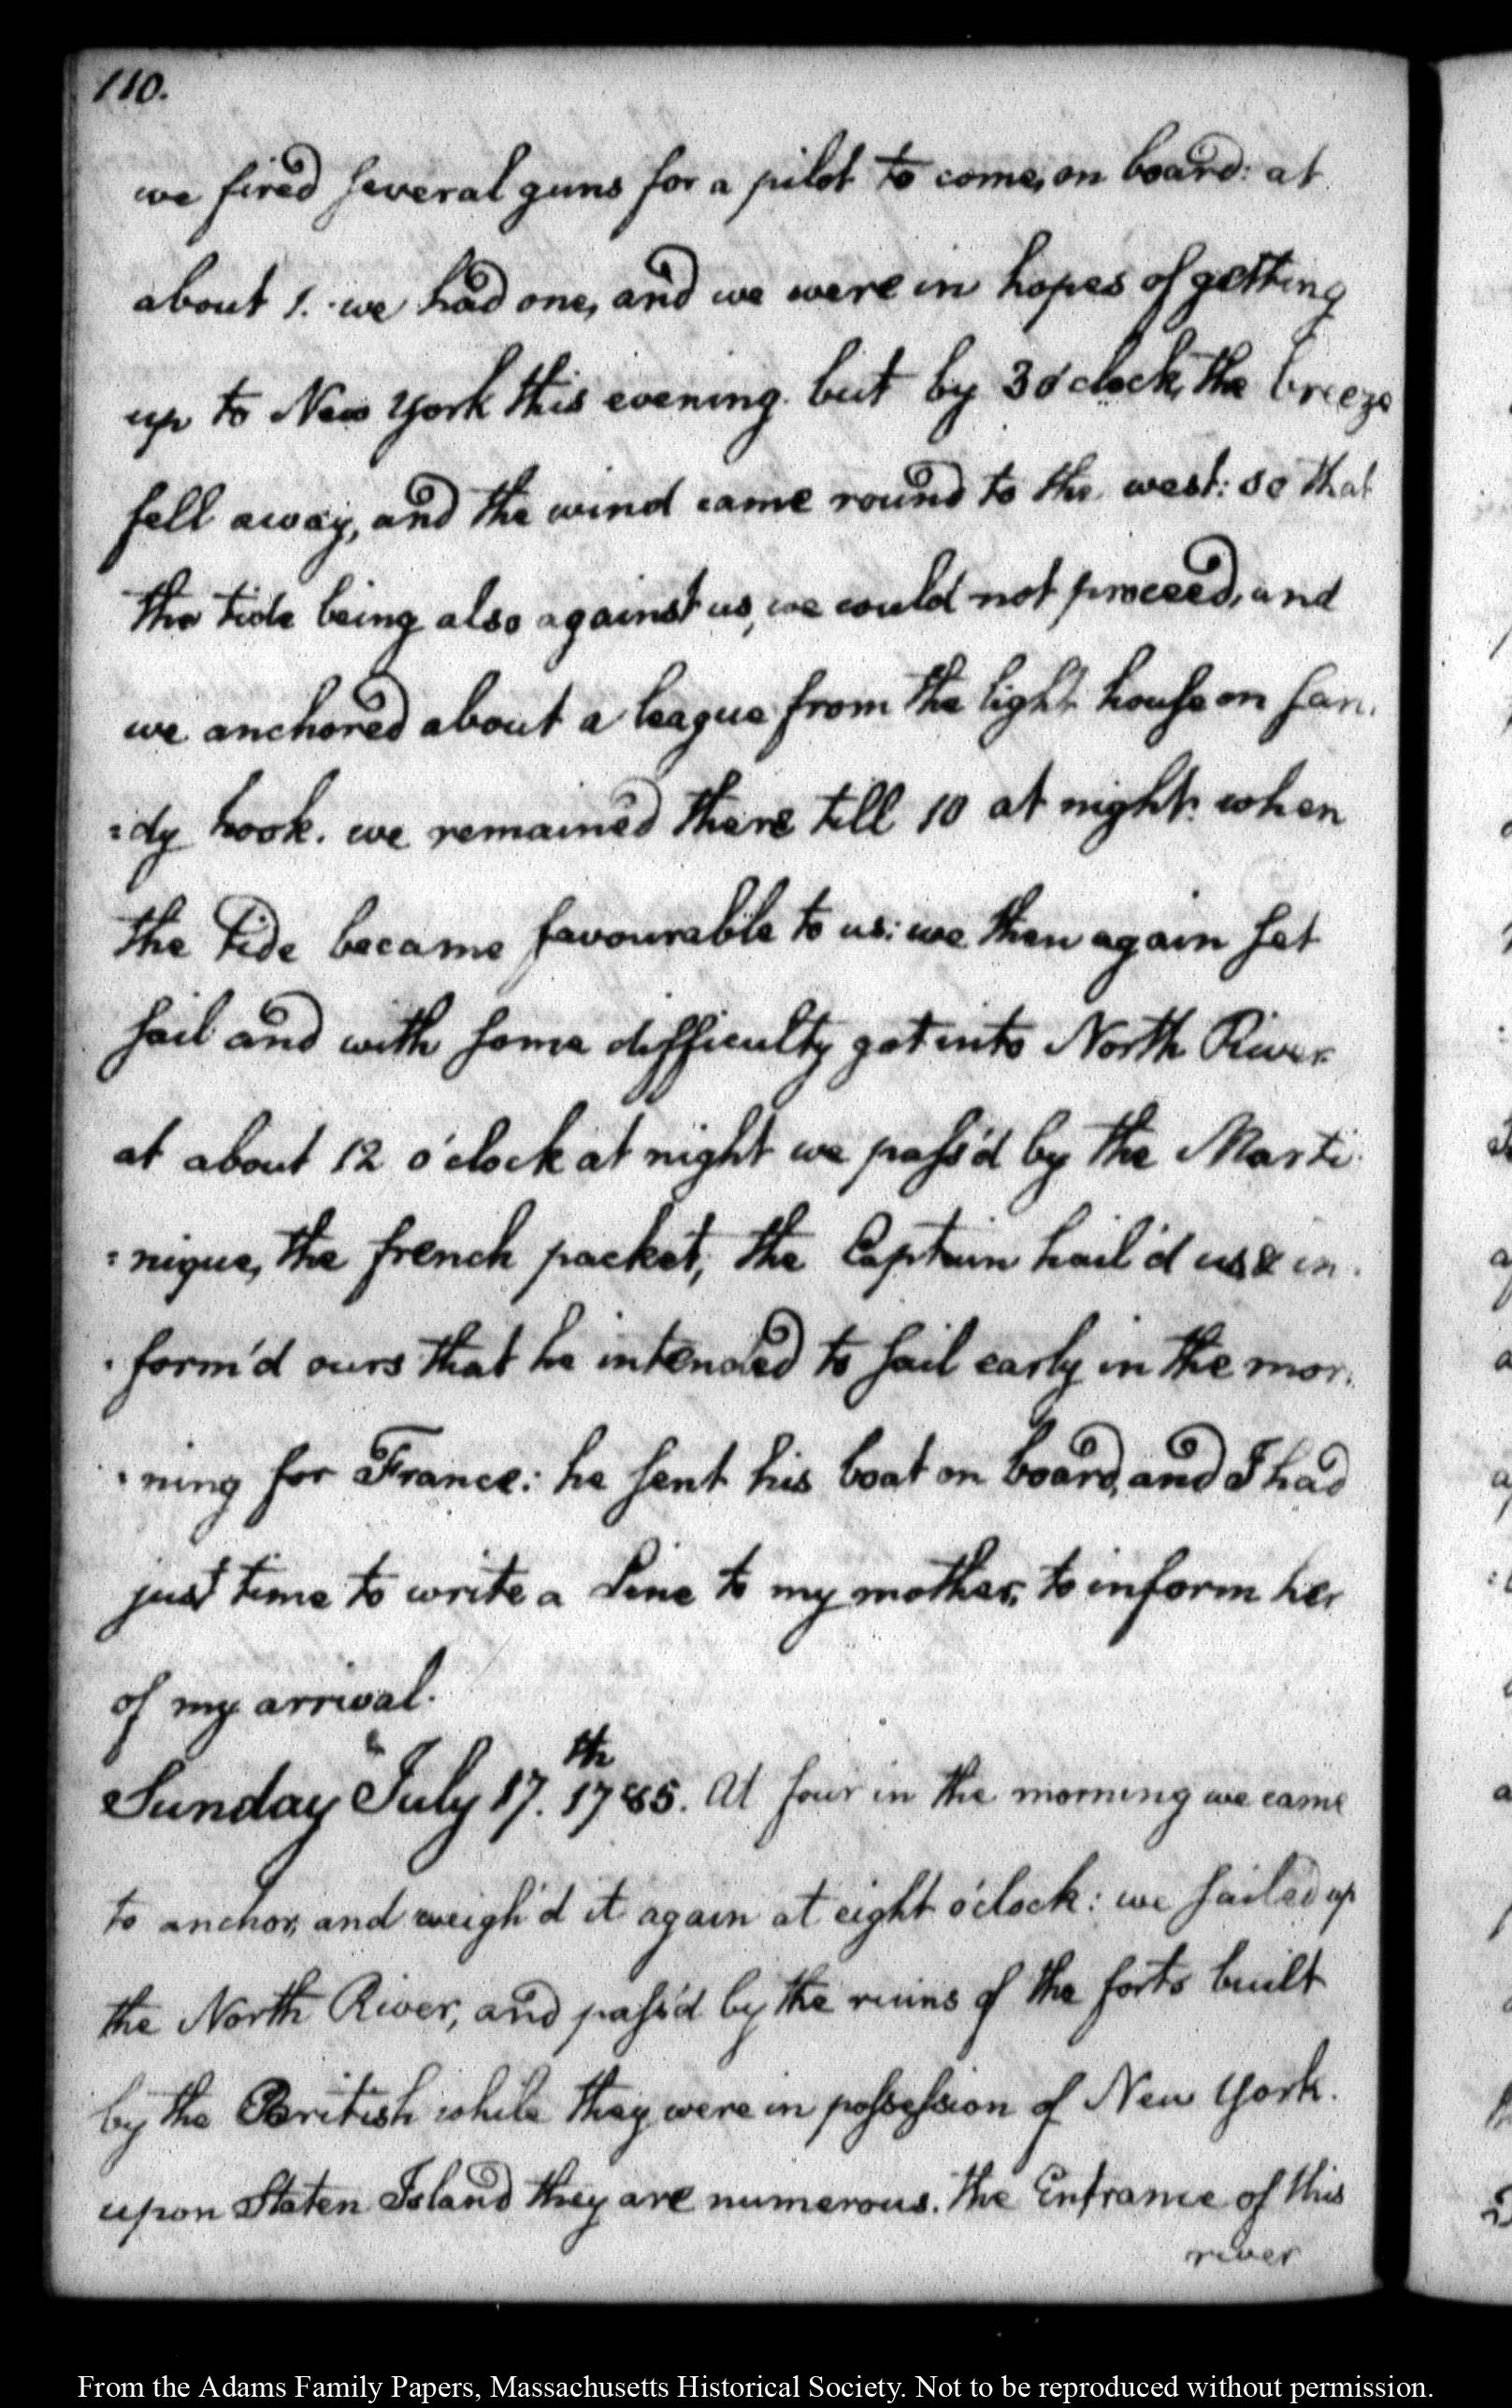 110.
we fired several guns for a pilot to come, on board: at
about 1. we had one, and we were in hopes of getting
up to New York this evening. but by 3 o'clock, the breeze
fell away, and the wind came round to the west: so that
the tide being also against us, we could not proceed, and
we anchored about a league from the light house on San.
:dy hook. we remained there till 10 at night: when
the Tide became favourable to us: we then again set
sail and with some difficulty got into North River
at about 12 o'clock at night we pass'd by the Marti.
:nique, the french packet, the Captain hail'd us & in.
.form'd ours that he intended to sail early in the mor.
.ning for France: he sent his boat on board, and I had
just time to write a Line to my mother, to inform her
of my arrival.
Sunday July 17.th 1785. At four in the morning we came
to anchor, and weigh'd it again at eight o'clock: we sailed up
the North River, and pass'd by the ruins of the forts built
by the British while they were in possession of New York.
upon Staten Island they are numerous. The Entrance of this
river
From the Adams Family Papers, Massachusetts Historical Society. Not to be reproduced without permission.